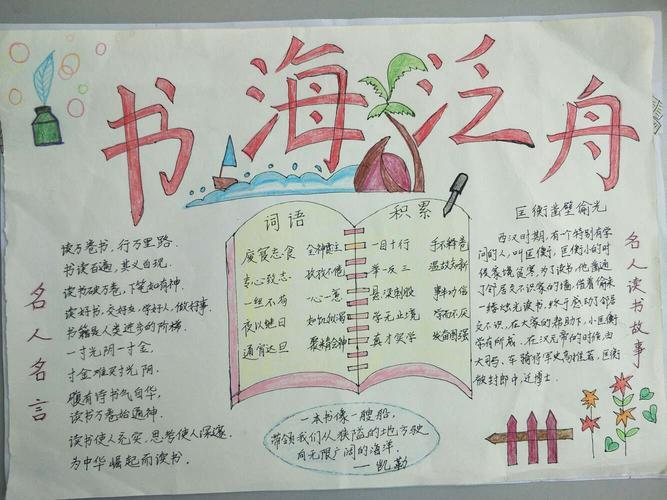 书海泛舟
名人名言
读万卷书,行万里路.
书读百遍,其义自现.
读书破万卷,下笔如有神.
读好书,交好友,学好人,做好事.
书籍是人类进步的阶梯.
一寸光阴一寸金,
寸金难买寸光阴.
腹有诗书气自华,
读书万卷始通神.
读书使人充实,思考使人深邃.
为中华崛起而读书.
词语 积累
废寝忘食 全神贯注 一目十行 手不释卷
专心致志 孜孜不倦 举一反三 温故知新
一丝不苟 一心一意 悬梁刺股 事半功倍
夜以继日 如饥似渴 学无止境 学而不厌
通宵达旦 聚精会神 真才实学 发奋图强
一本书像一艘船,
带领我们从狭隘的地方驶
向无限广阔的海洋.
——凯勒
匡衡凿壁偷光
西汉时期,有个特别有学
问的人,叫匡衡,匡衡小的时
候家境贫寒,为了读书,他凿通
了邻居文不识家的墙,借着偷来
一缕烛光读书,终于感动了邻居
文不识,在大家的帮助下,小匡衡
学有所成.在汉元帝的时候,由
大司马、车骑将军史高推荐,匡衡
做封郎中,迁博士.
名人读书故事